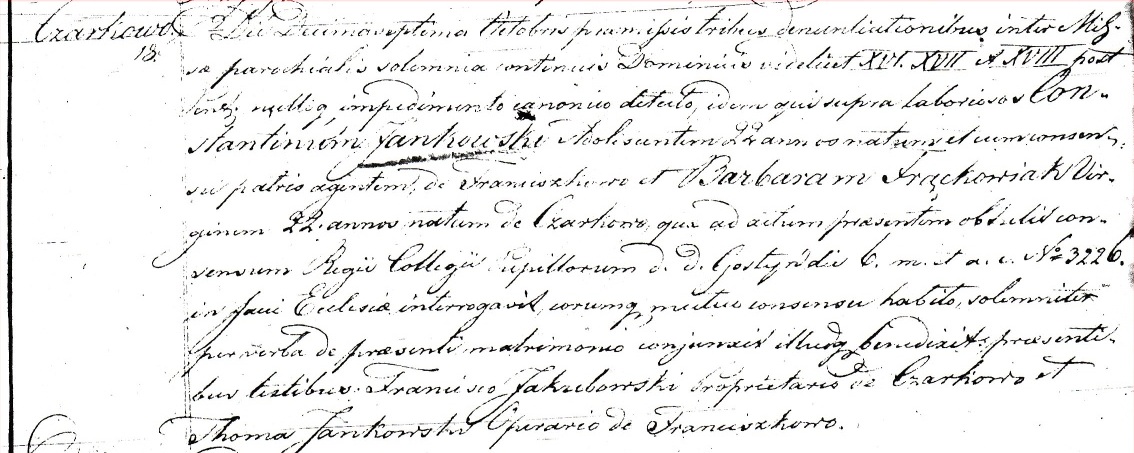 Czarkowo. Die Decima septima Octobris præmissis tribus denuntiationibus inter Mis-
18. sæ parochialis solemnia continuis Dominicis videlicet XVI. XVII et XVIII post
Pent. nulloq impedimento canonico detecto, idem qui supra laboriosos Con-
stantinum Jankowski Adolescentem 22 annos natum et cum consen-
su patris agentem, de Franciszkowo et Barbaram Frąckowiak Vir-
ginem 22 annos natam de Czarkowo, quæ ad actum præsentem obtulit con-
sensum Regii Collegii Pupillorum d. d. Gostyń die 6. m. et a. c. No 3226.
in facie Ecclesiæ interrogavit, eorumq mutuo consensu habito, solemniter
per verba de præsenti matrimonio conjunxit illudq benedixit præsenti-
bus testibus Francisco Jakubowski Proprietario de Czarkowo et
Thoma Jankowski Operario de Franciszkowo.